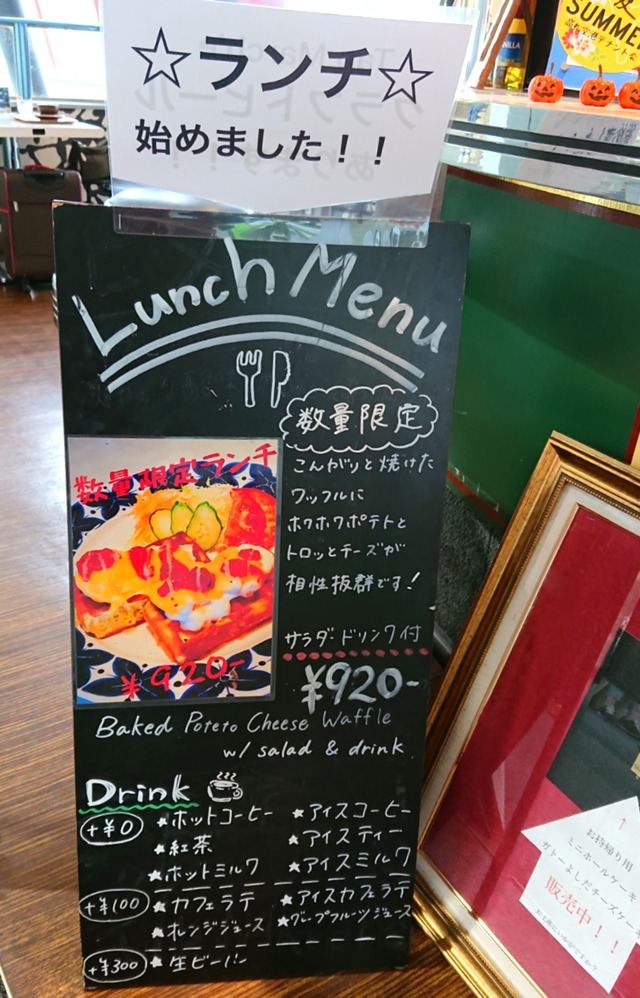 ☆ランチ☆
始めました！！
SUMME
Lunch Menu
数量限定
こんがりと焼けた
ワッフルに
ホクホクポテトと
トロッとチーズが
相性抜群です!
サラダ・ドリンク付
¥920-
数量限定ランチ
¥920-
Baked Poteto Cheese Waffle
w/ salad & drink
Drink
+¥0
★ホットコーヒー ★アイスコーヒー
★紅茶 ★アイスティー
★ホットミルク ★アイスミルク
+¥100
★カフェラテ ★アイスカフェラテ
★オレンジジュース ★グレープフルーツジュース
+¥300
★生ビール
↑
お持帰り用
ミニホールケーキ
ガトーよしだチーズケー
販売中！！
お土産にいかがですか？